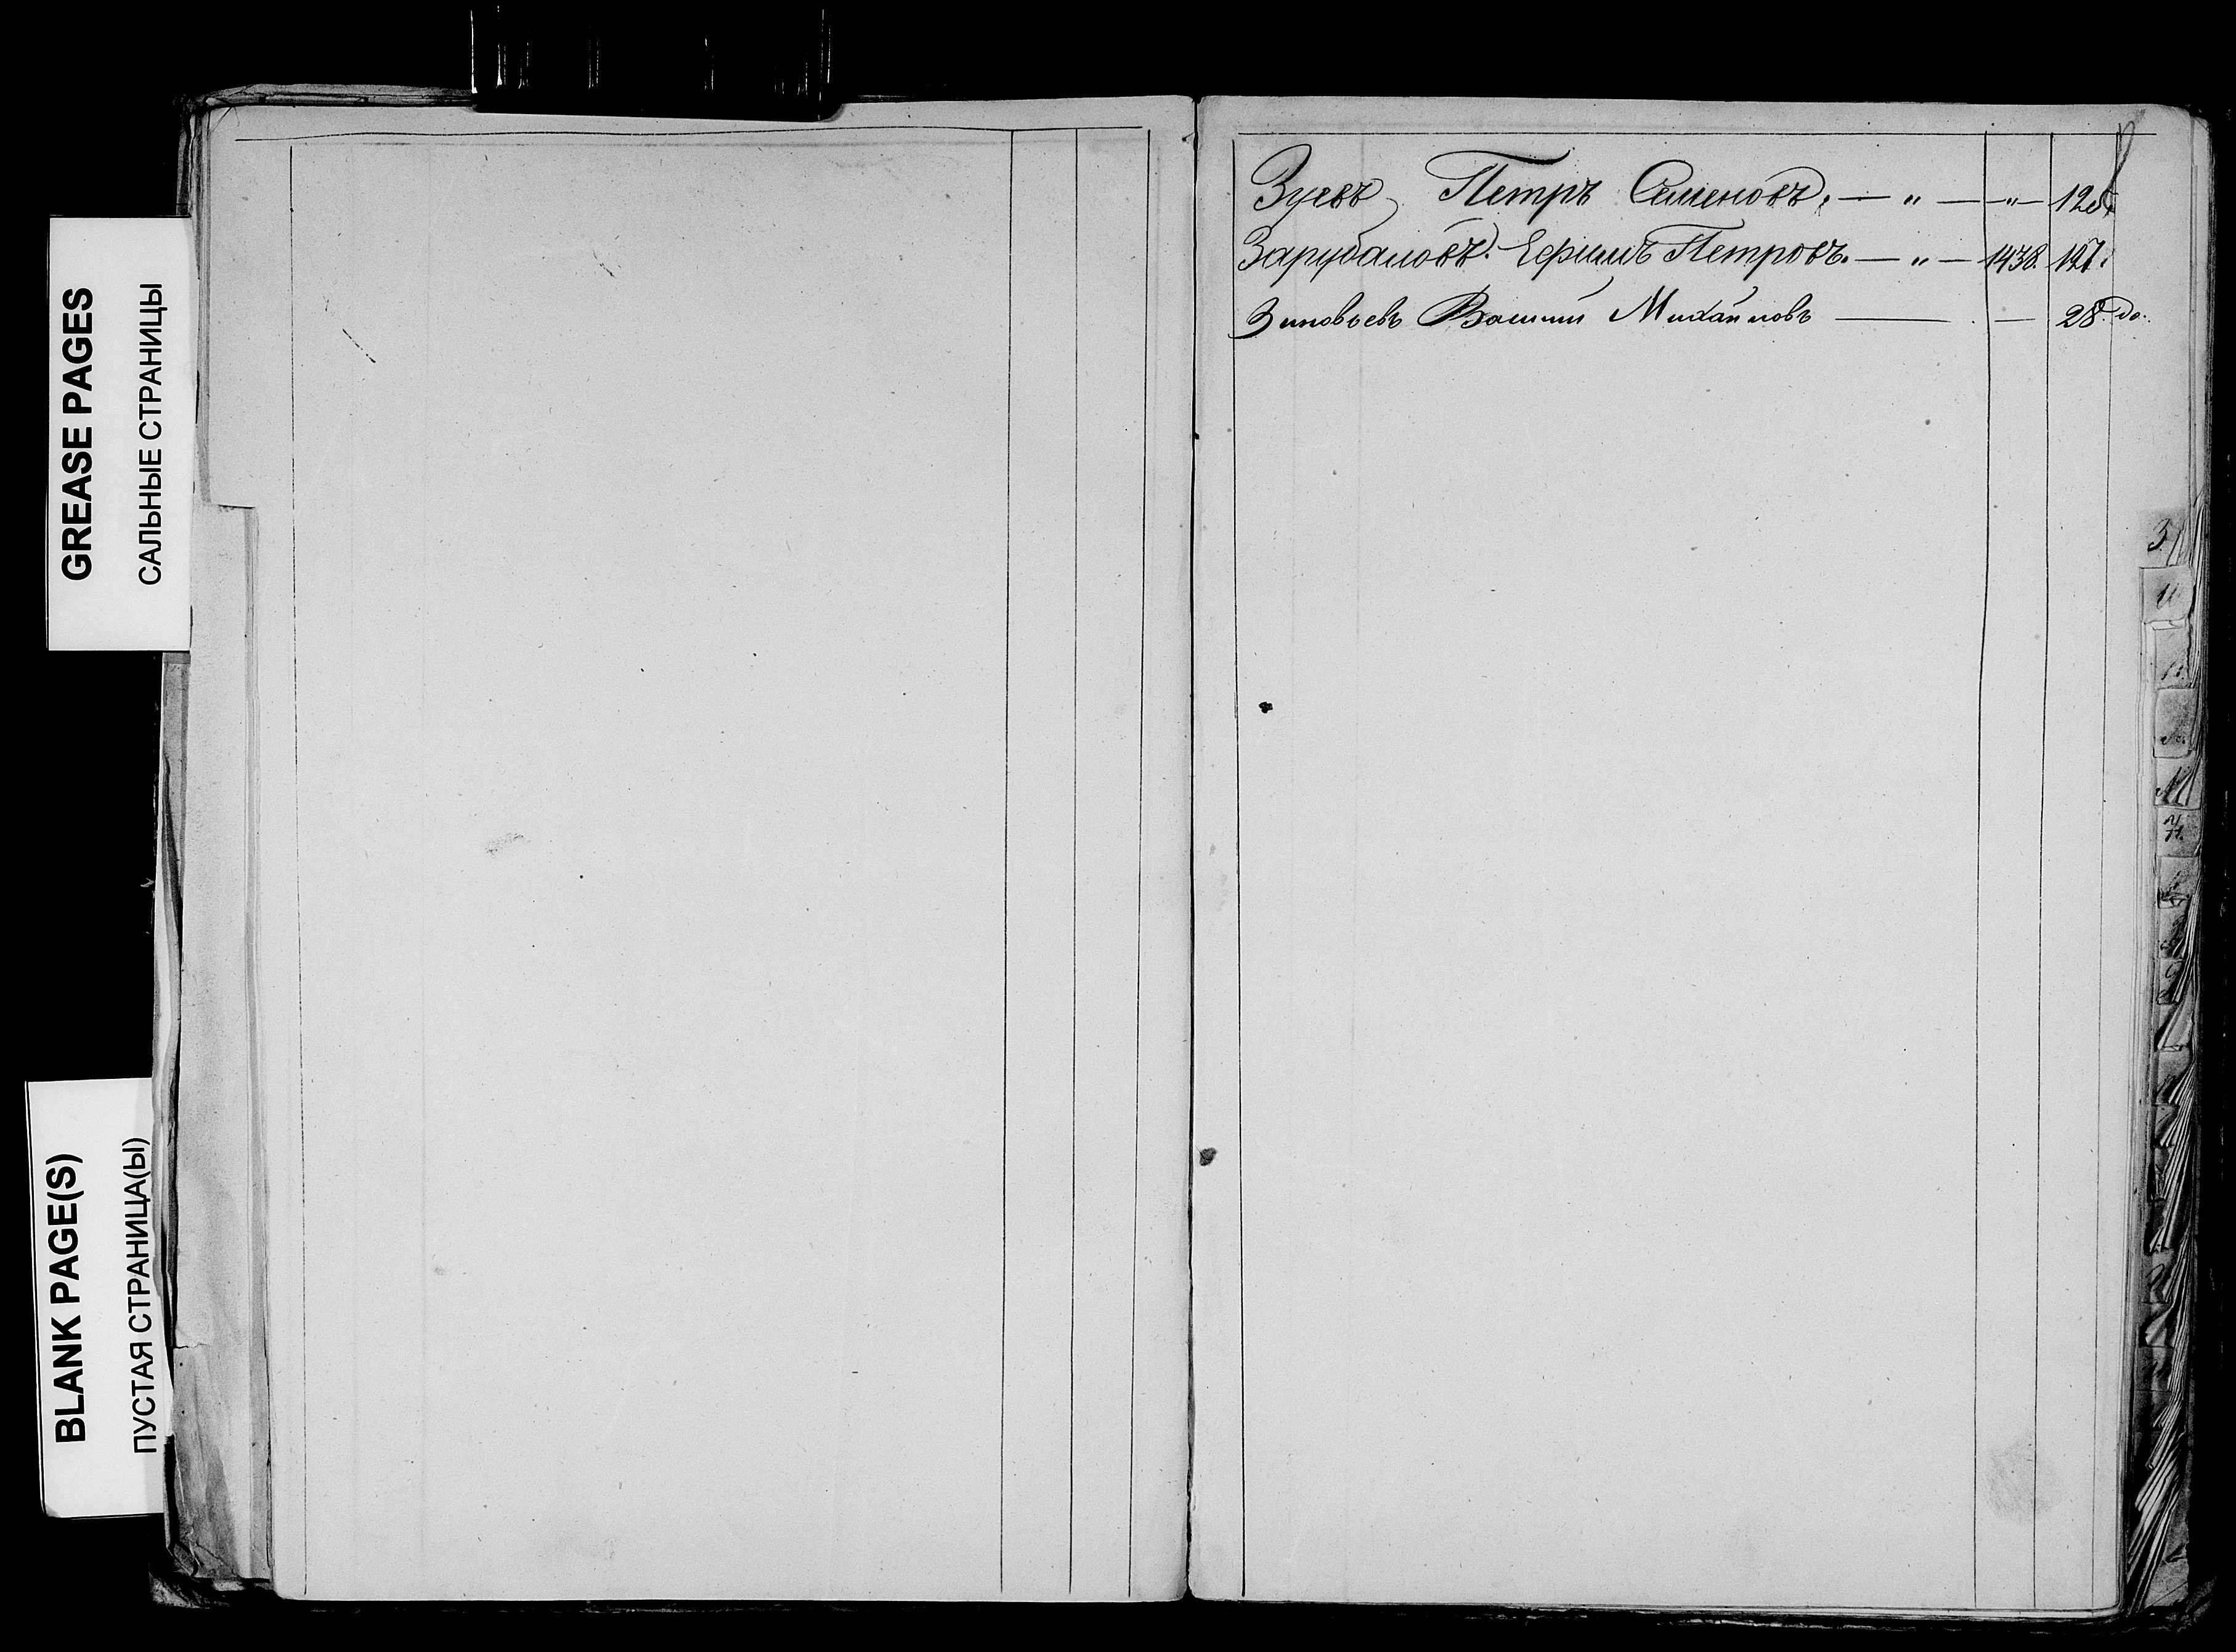 GREASE PAGES
САЛЬНЫЕ СТРАНИЦЫ
BLANK PAGE(S)
ПУСТАЯ СТРАНИЦА(Ы)
Зуевъ Петръ Семеновъ. — „ — — „ —
Зарубаловъ. Ефимъ Петровъ. — „ — 1438. 127.
Зиновьевъ Василий Михайловъ — — 28 до.
З
И